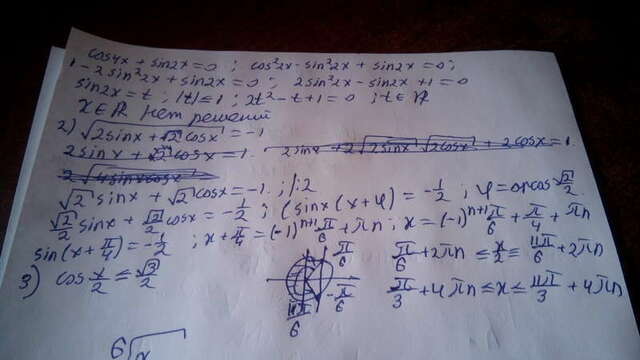 cos4x + sin2x = 0 ; cos²2x - sin²2x + sin2x = 0 ;
1 - 2sin²2x + sin2x = 0 ; 2sin²2x - sin2x + 1 = 0
sin2x = t ; |t| ≤ 1 ; 2t² - t + 1 = 0 ; t ∈ R
x ∈ R Нет решений
2) √2 sinx + √2 cosx = -1
2 sinx + √2 cosx = 1. 2sinx + 2√2sinx √2cosx + 2cosx = 1.
2√4sinxcosx
√2 sinx + √2 cosx = -1. |:2
√2/2 sinx + √2/2 cosx = -1/2 ; (sinx(x+φ) = -1/2 ; φ = arcos √2/2.
sin(x + π/4) = -1/2 ; x + π/4 = (-1)ⁿ⁺¹ π/6 + πn ; x = (-1)ⁿ⁺¹ π/6 + π/4 + πn
3) cos x/2 ≤ √3/2 π/6 -π/6 11π/6 π/6 + 2πn ≤ x/2 ≤ 11π/6 + 2πn
π/3 + 4πn ≤ x ≤ 11π/3 + 4πn
6